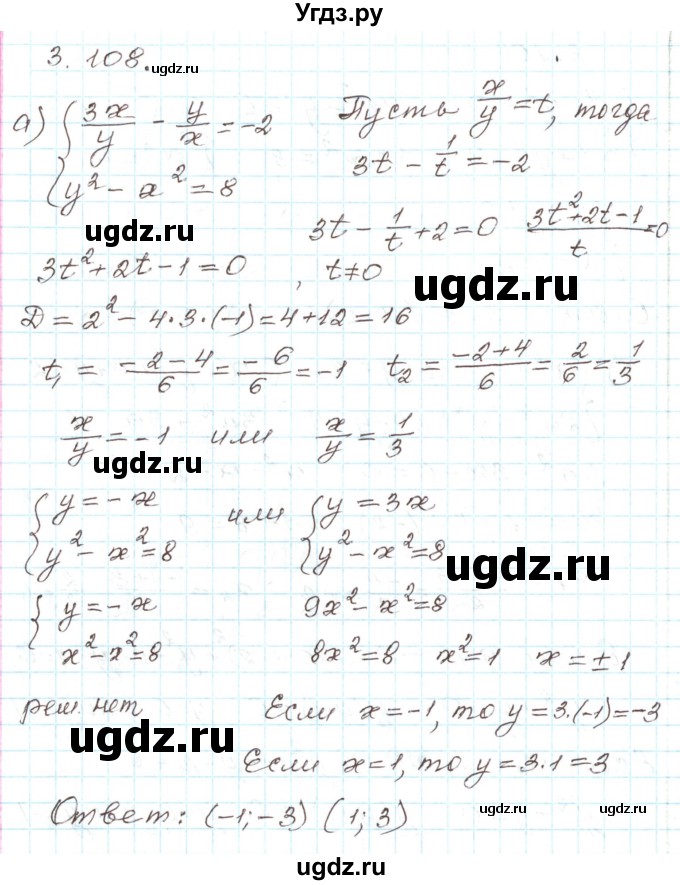 Угдз.ру
3.108. ugdz.ru
а) { 3x/y − y/x = −2 Пусть x/y = t, тогда
y² − x² = 8 3t − 1/t = −2
ugdz.ru
3t − 1/t + 2 = 0 (3t² + 2t − 1)/t = 0
3t² + 2t − 1 = 0, t ≠ 0
ugdz.ru ugdz.ru
D = 2² − 4·3·(−1) = 4 + 12 = 16
t₁ = (−2 − 4)/6 = −6/6 = −1 t₂ = (−2 + 4)/6 = 2/6 = 1/3
x/y = −1 или x/y = 1/3
ugdz.ru ugdz.ru
{ y = −x или { y = 3x
y² − x² = 8 y² − x² = 8
ugdz.ru ugdz.ru
{ y = −x 9x² − x² = 8
x² − x² = 8 8x² = 8 x² = 1 x = ±1
реш. нет Если x = −1, то y = 3·(−1) = −3
ugdz.ru
Если x = 1, то y = 3·1 = 3
Ответ: (−1; −3) (1; 3)
ugdz.ru ugdz.ru
ugdz.ru